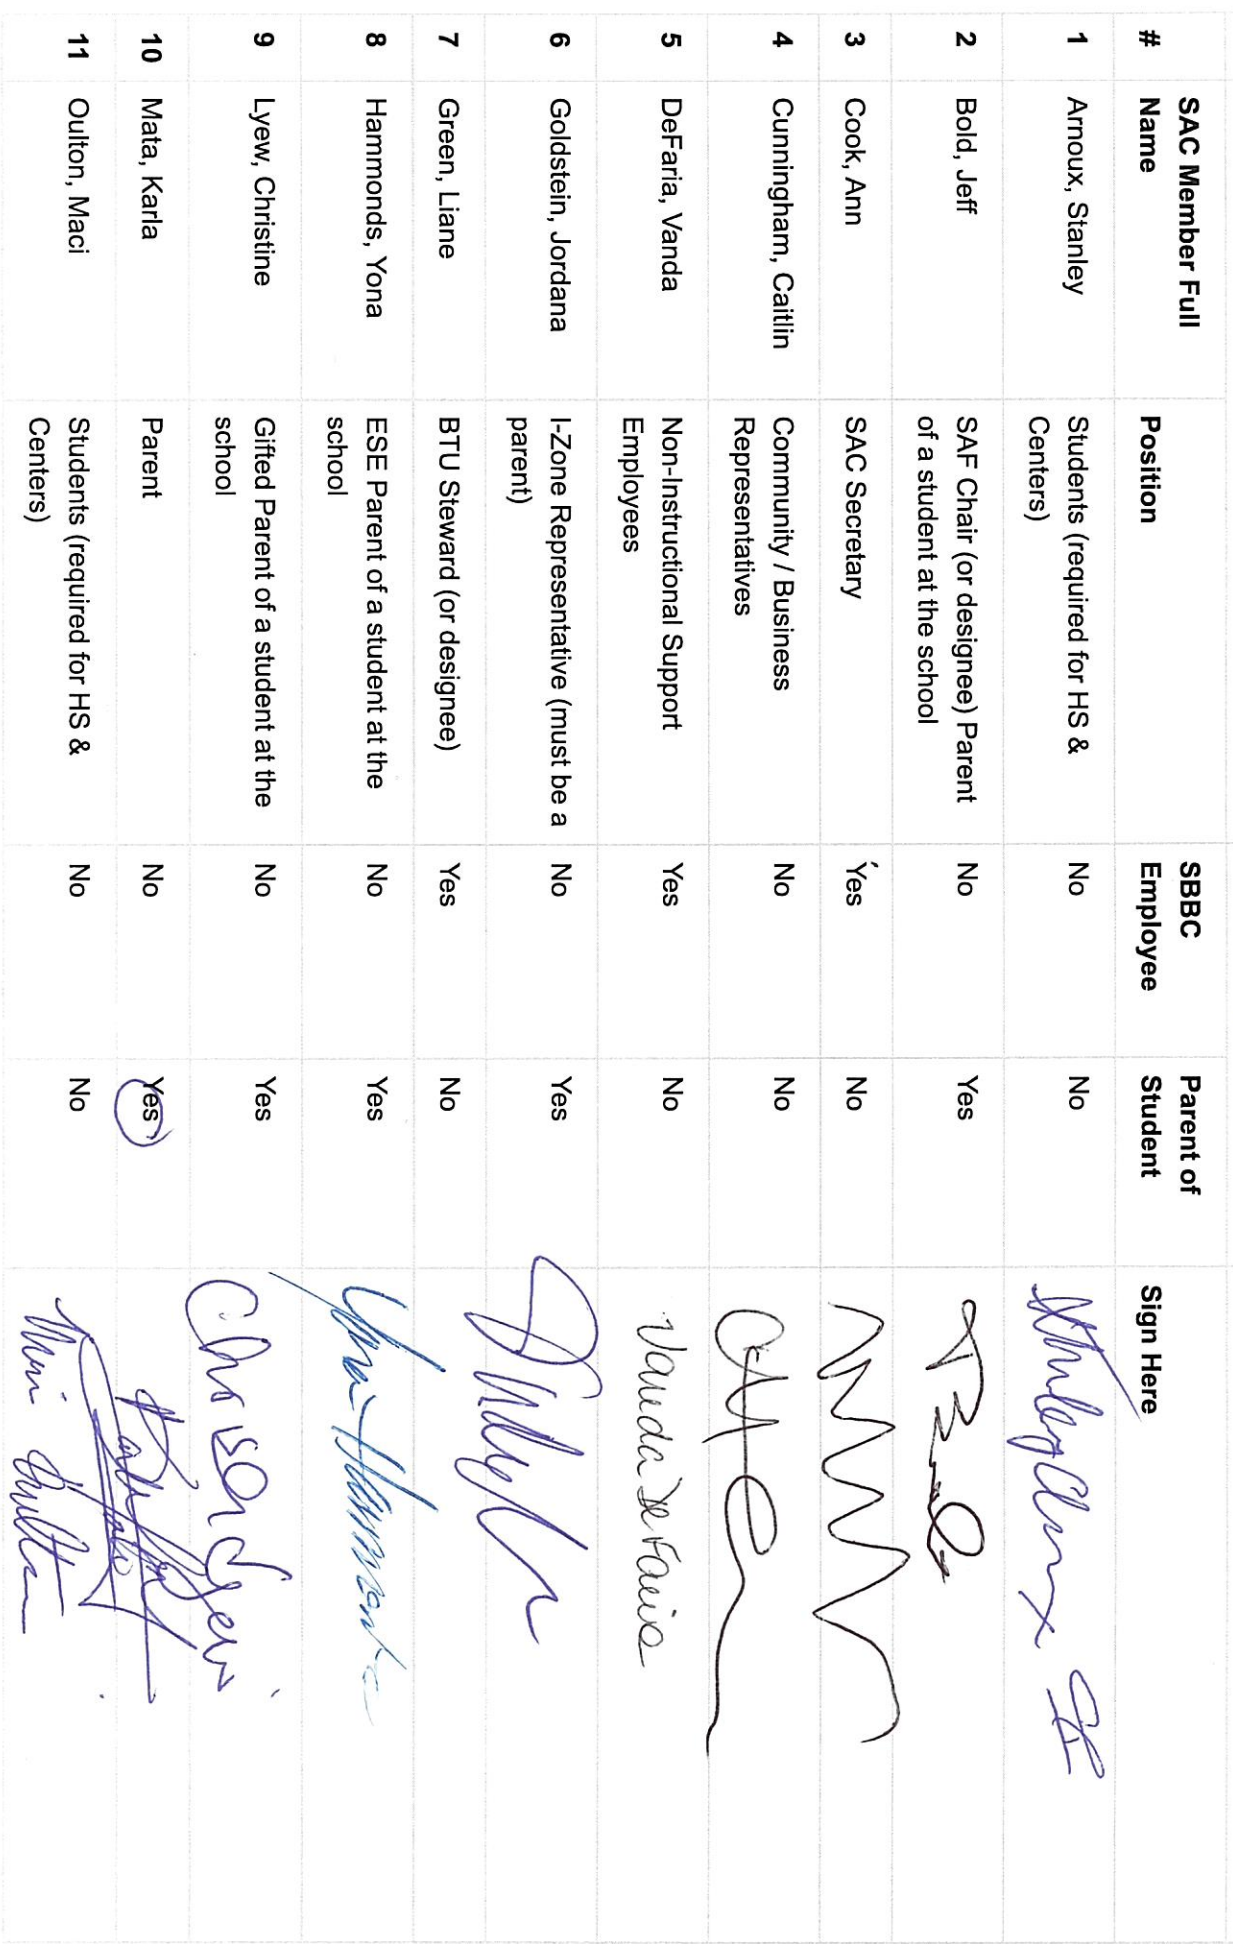 SAC Member Full
# Name Position SBBC Employee Parent of Student Sign Here
1 Arnoux, Stanley Students (required for HS & Centers) No No
2 Bold, Jeff SAF Chair (or designee) Parent of a student at the school No Yes
3 Cook, Ann SAC Secretary Yes No
4 Cunningham, Caitlin Community / Business Representatives No No
5 DeFaria, Vanda Non-Instructional Support Employees Yes No Vanda De Faria
6 Goldstein, Jordana I-Zone Representative (must be a parent) No Yes
7 Green, Liane BTU Steward (or designee) Yes No
8 Hammonds, Yona ESE Parent of a student at the school No Yes
9 Lyew, Christine Gifted Parent of a student at the school No Yes
10 Mata, Karla Parent No Yes
11 Oulton, Maci Students (required for HS & Centers) No No